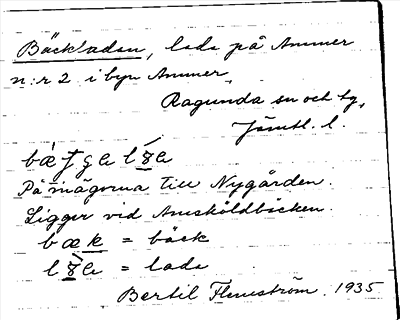 Bäckladan, lada på Ammer
n:r 2 i byn Ammer,
Ragunda sn och tg,
Jämtl. l.
På mägorna till Nygården.
Ligger vid Amesköldbäcken.
bæk = bäck
= lada
Bertil Flemström. 1935